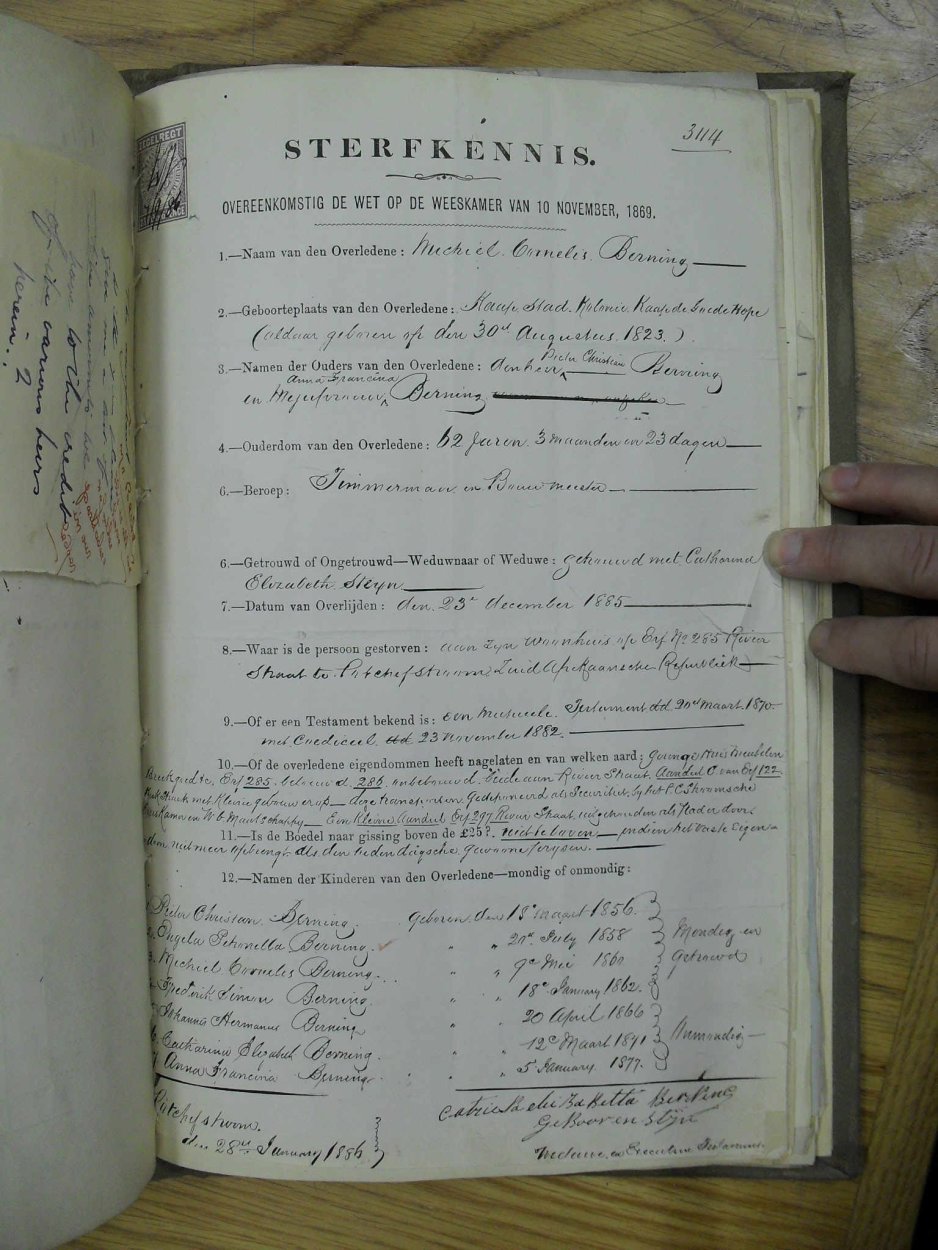 344
STERFKENNIS.
OVEREENKOMSTIG DE WET OP DE WEESKAMER VAN 10 NOVEMBER, 1869.
1.—Naam van den Overledene: Michiel Cornelis Berning
2.—Geboorteplaats van den Overledene: Kaap Stad, Kolonie Kaap de Goede Hope
(aldaar geboren op den 30st Augustus 1823.)
3.—Namen der Ouders van den Overledene: den heer Pieter Christian Berning
en Mejufvrouw Anna Francina Berning
4.—Ouderdom van den Overledene: 62 Jaren 3 maanden en 23 dagen
6.—Beroep: Timmerman en Bouwmeester
6.—Getrouwd of Ongetrouwd—Weduwnaar of Weduwe: getrouwd met Catharina
Elizabeth Steyn
7.—Datum van Overlijden: den 23e december 1885
8.—Waar is de persoon gestorven: aan zyn woonhuis op Erf No 285 Rivier
Straat te Potchefstroom Zuid Afrikaansche Republiek
9.—Of er een Testament bekend is: een Mutueele Testament dd 20st maart 1870
met Codiciel dd 23 November 1882.
10.—Of de overledene eigendommen heeft nagelaten en van welken aard: Geringe Huis Meubelen
Erf 285 bebouwd, 286 onbebouwd beide aan Rivier Straat, Aandeel C van Erf 122
Kerk Straat met Kleine gebouw erop deze transporten Gedeponeerd als Securiteit by het P.C. Stroomsche
Weeskamer en W.b. Maatschappy Een Kleine Aandeel Erf 297 Rivier Straat
11.—Is de Boedel naar gissing boven de £25?. niet te boven indien het Vaste Eigen-
dom niet meer opbrengt als den heden daagsche gewoone Pryzen.
12.—Namen der Kinderen van den Overledene—mondig of onmondig:
1. Pieter Christian Berning geboren den 18e maart 1856.
2. Engela Petronella Berning " " 21st July 1858 Mondig en
3. Michiel Cornelis Berning " " 9de Mei 1860 Getrouwd
4. Frederik Simon Berning " " 18e January 1862.
5. Johannis Hermanus Berning " " 20 April 1866
6. Catharina Elizabeth Berning " " 12e Maart 1871 Onmondig
7. Anna Francina Berning " " 5 January 1877.
Potchefstroom
den 28st January 1886
Berning
Gebooren Stijn
Weduwe en Executrice Testamentair
to the credit
of the various heirs
herein.